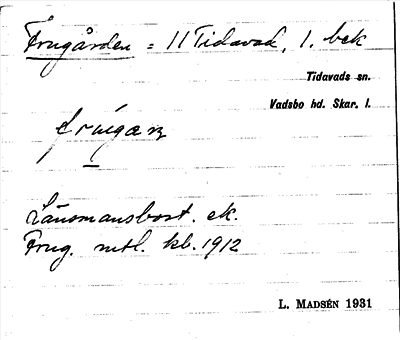 Frugården = 11 Tidavad, 1. bek
Tidavads sn.
Vadsbo hd. Skar. l.
Länsmansbost. ek.
Frug. mtl. kb. 1912
L. MADSÉN 1931